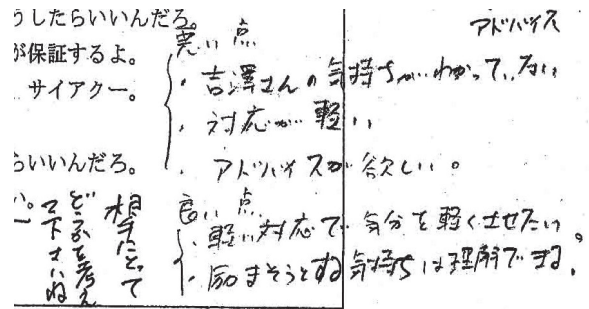 うしたらいいんだろ。
が保証するよ。
サイアクー。
らいいんだろ。
アドバイス
悪い点
・吉澤さんの気持ちがわかっていない
・対応が軽い
・アドバイスが欲しい。
良い点
・軽い対応で気分を軽くさせたい
・励まそうとする気持ちは理解できる。
相手にとって
どうかを考え
て下さいね